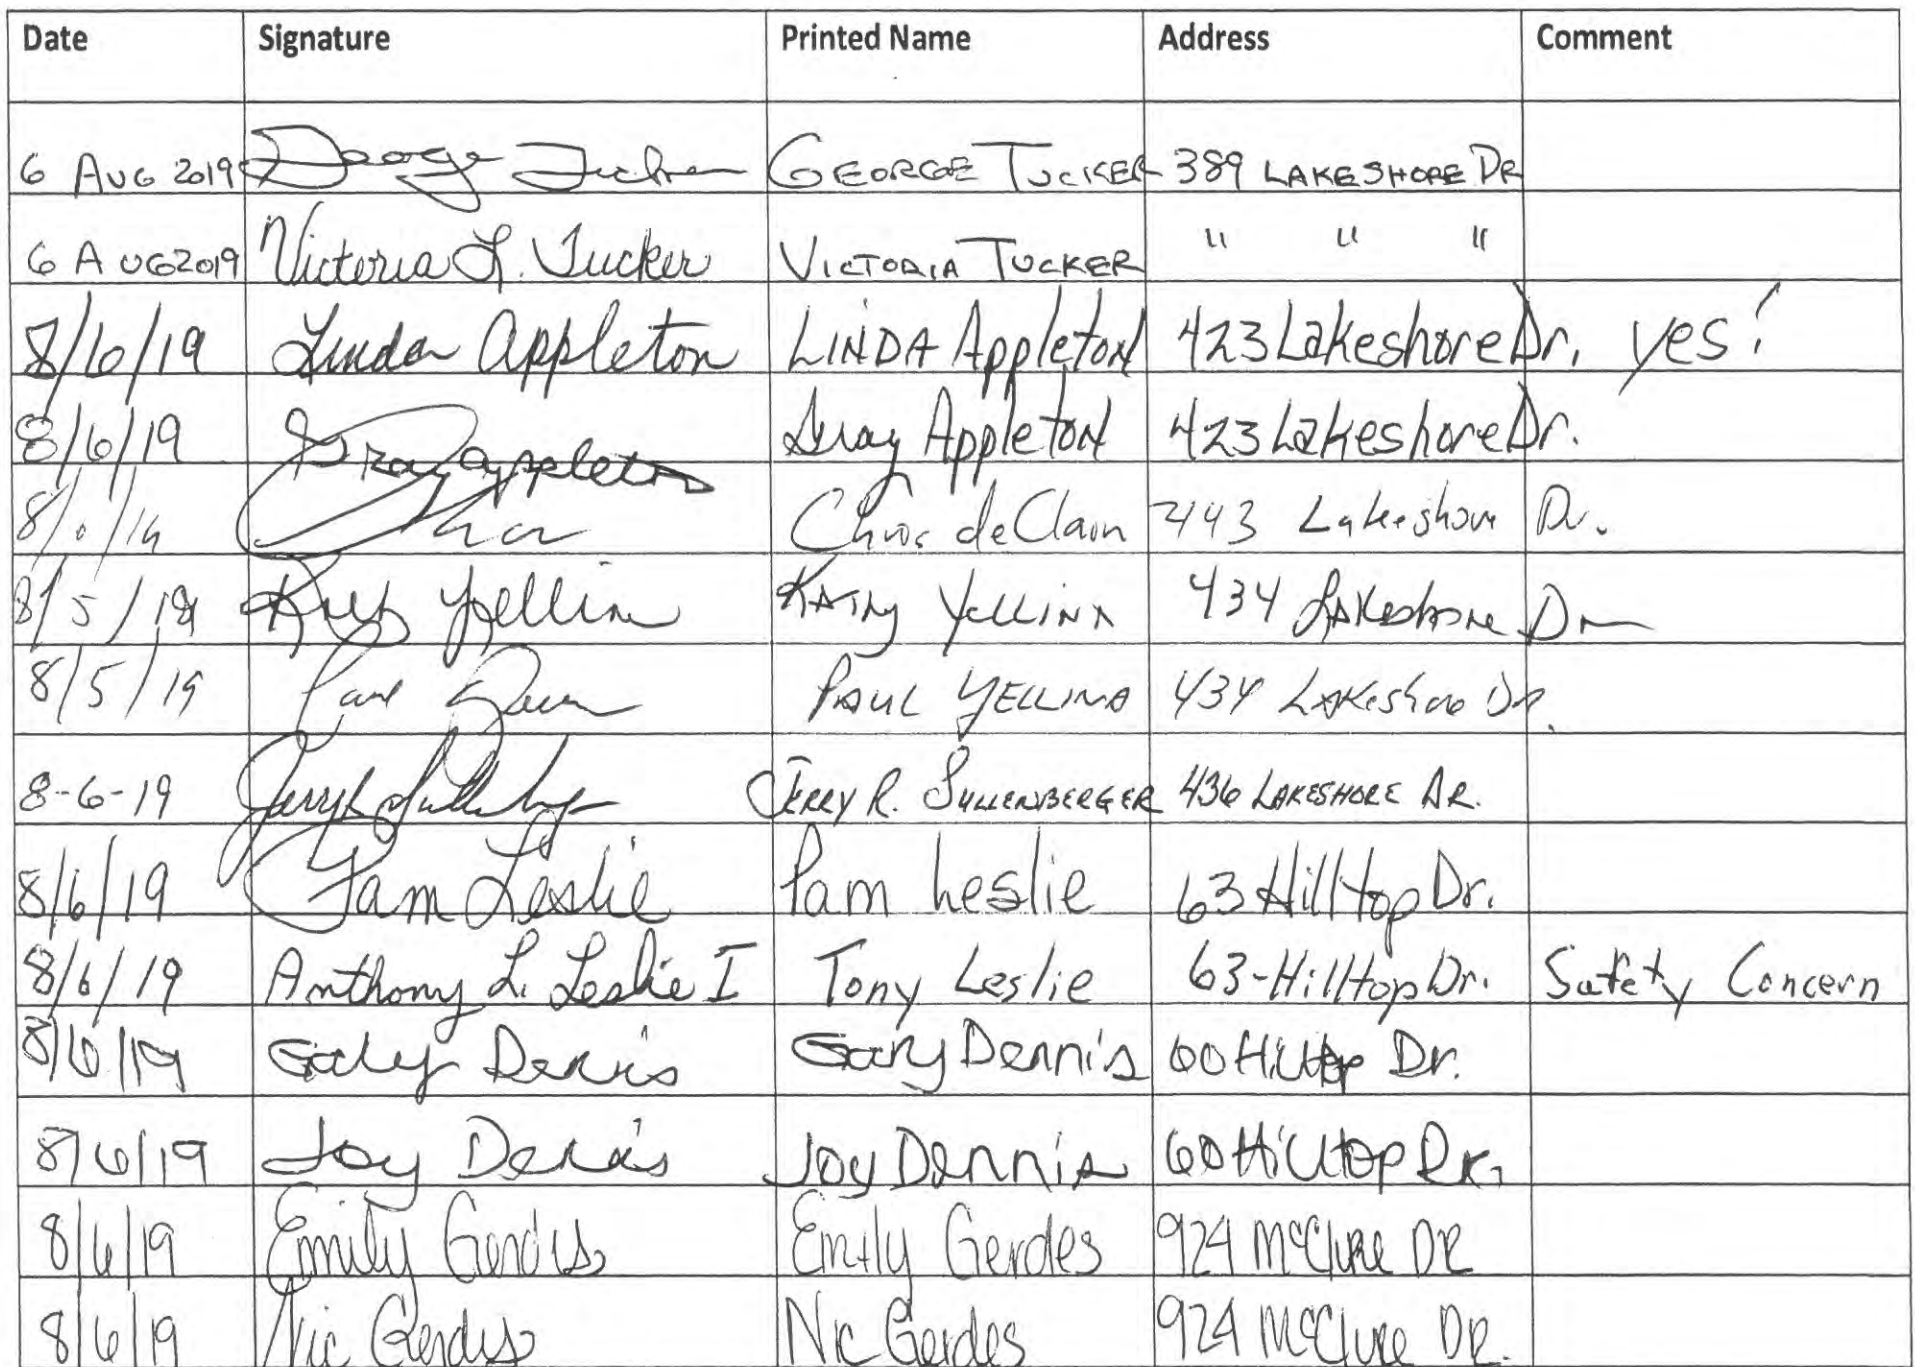 Date Signature Printed Name Address Comment
6 AUG 2019 George Tucker GEORGE TUCKER 389 LAKESHORE DR
6 AUG2019 Victoria L. Tucker VICTORIA TUCKER " " "
8/6/19 Linda Appleton LINDA Appleton 423 Lakeshore Dr. yes!
8/6/19 Gray Appleton Gray Appleton 423 Lakeshore Dr.
8/6/19 Chris deClain 443 Lakeshore Dr.
8/5/19 Yellina KATHY YELLINA 434 LAKEshore Dr
8/5/19 Paul PAUL YELLINA 434 LAKEshore Dr.
8-6-19 Jerry R Sullenberger JERRY R. SULLENBERGER 436 LAKESHORE DR.
8/6/19 Pam Leslie Pam Leslie 63 Hilltop Dr.
8/6/19 Anthony L. Leslie I Tony Leslie 63-Hilltop Dr. Safety Concern
8/6/19 Gary Dennis Gary Dennis 60 Hilltop Dr.
8/6/19 Joy Dennis Joy Dennis 60 Hilltop DR.
8/6/19 Emily Gerdes Emily Gerdes 924 McClure DR
8/6/19 Nic Gerdes Nic Gerdes 924 McClure DR.